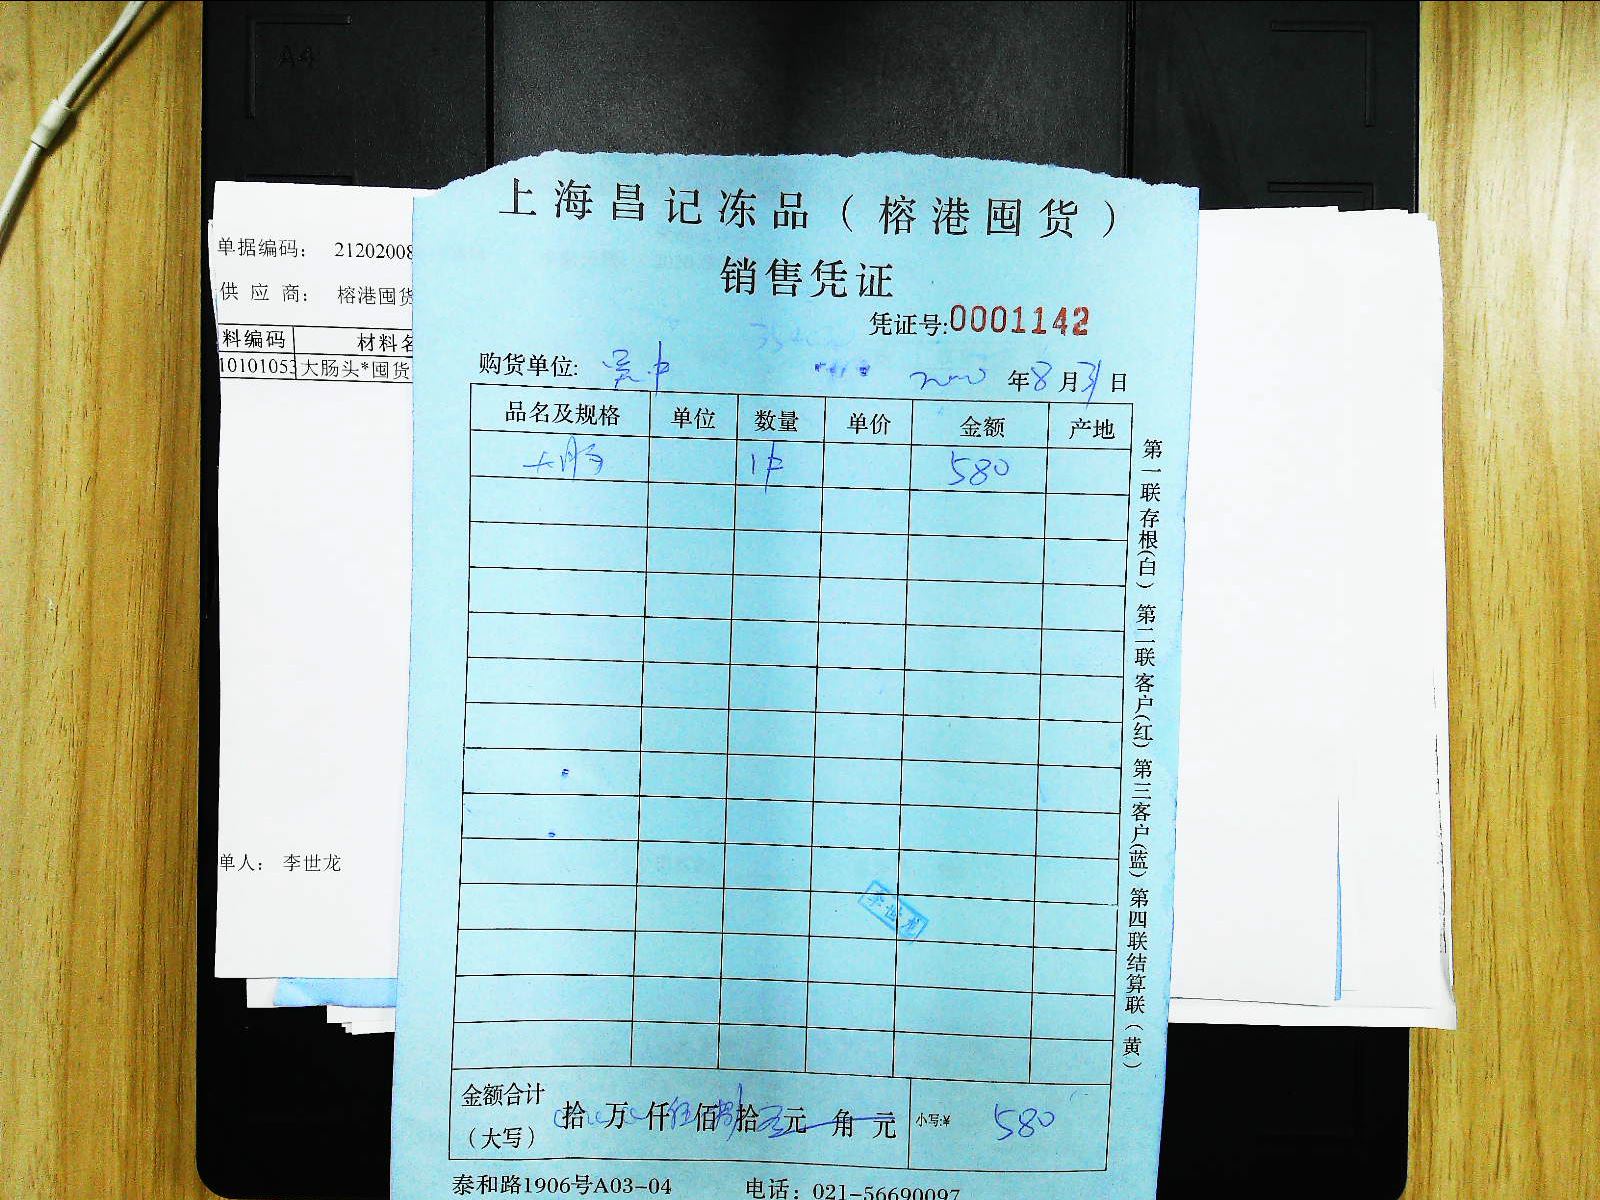 A4
上海昌记冻品（榕港囤货）
销售凭证
凭证号:0001142
单据编码： 21202008
供 应 商： 榕港囤货
料编码 材料名
10101053 大肠头*囤货
单人： 李世龙
购货单位: 吴中 2020 年 8 月 31 日
品名及规格 单位 数量 单价 金额 产地
大肠 1件 580
李世龙
金额合计（大写） 拾 万 仟 伍 佰 捌 拾 元 角 元 小写:¥ 580
泰和路1906号A03-04 电话：021-56690097
第一联存根(白) 第二联客户(红) 第三客户(蓝) 第四联结算联(黄)